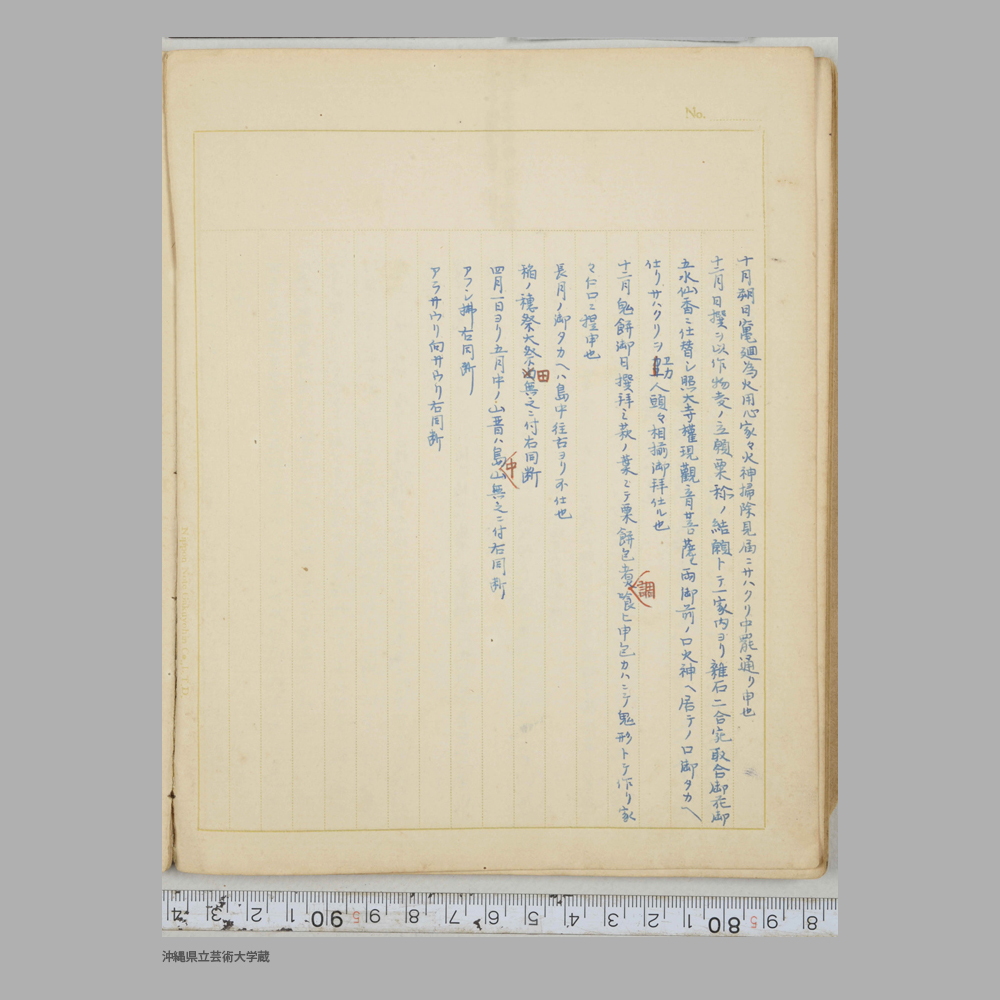 No.
十月朔日竃廻為火用心家々火神掃除見届ニサハクリ中罷通り申也
十二月日撰ヲ以作物麦ノ立願栗称ノ結願トテ一家内ヨリ雑石二合宛取合御花御
五水仙香ニ仕替シ照太寺権現観音菩薩両御前ノロ火神ヘ居テノロ御タカヘ
仕りサハクリヲカ人頭々相揃御拝仕ル也
十二月鬼餅御日撰拝ミ萩ノ葉ニテ栗餅包煮喰ヒ申包カハニテ鬼形トテ作り家
調
々仁口ニ捏申也
長月ノ御タカヘハ島中往古ヨリ不仕也
稲ノ穂祭大祭ハ無之ニ付右同断
田
四月一日ヨリ五月中ノ山留ハ島山無之ニ付右同断
中
アフシ払右同断
アラサウリ向サウリ右同断
4 3 2 1 90 9 8 7 6 5 4 3 2 1 80 9 8
沖縄県立芸術大学蔵